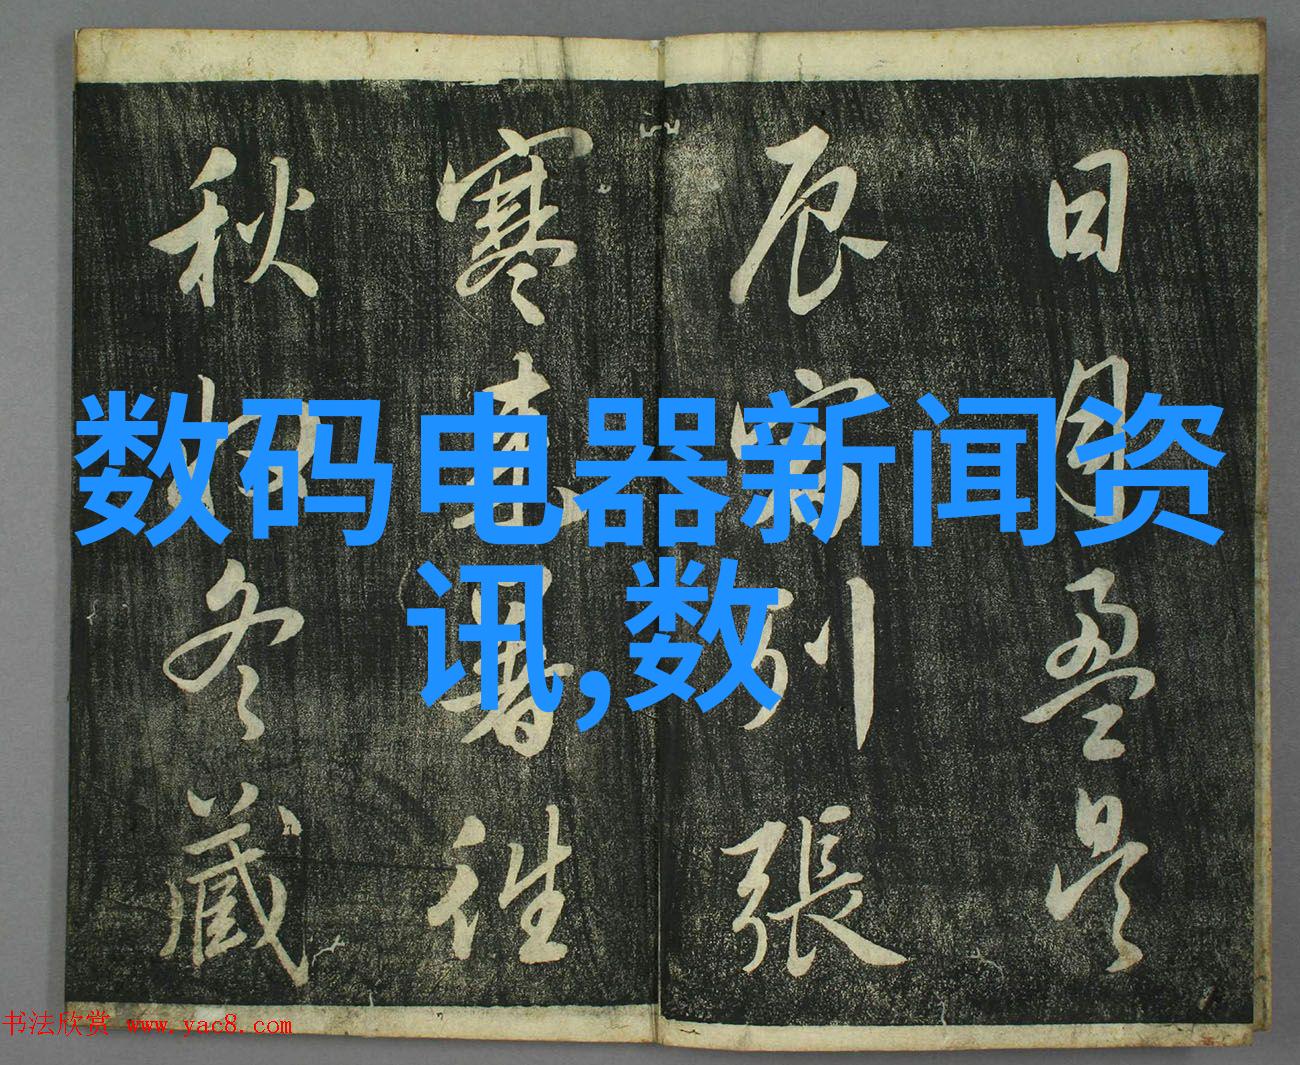 日月盈昃
辰宿列張
寒来暑往
秋收冬藏
数码电器新闻资
讯,数
书法欣赏 www.yac8.com